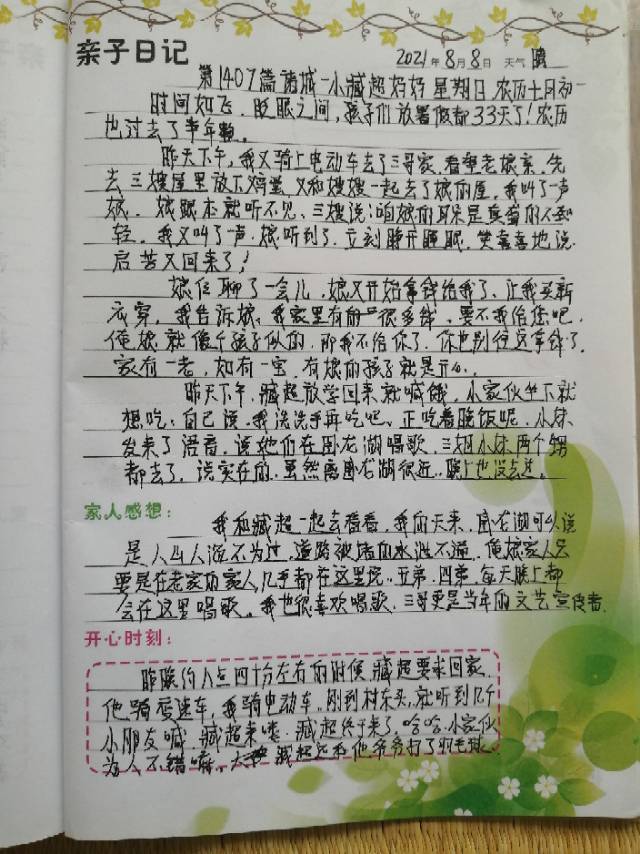 亲子日记 2021年8月8日 天气 晴
第1407篇 诸城一小臧超妈妈 星期日 农历七月初一
时间如飞，眨眼之间，孩子们放暑假都33天了！农历
也过去了半年整。
昨天下午，我又骑上电动车去了三哥家，看望老娘亲，先
去三嫂屋里放下鸡蛋，又和嫂嫂一起去了娘的屋，我叫了一声
娘，娘跟本就听不见，三嫂说：咱娘的耳朵是真聋的不轻
轻。我又叫了一声，娘听到了，立刻睁开睡眼，笑喜喜地说
启芳又回来了！
娘俩聊了一会儿，娘又开始拿钱给我了，让我买新
衣穿，我告诉娘：我家里有的是很多钱，要不我给您吧，
俺娘就像个孩子似的，那我不给你了，你也别往这拿钱了。
家有一老，如有一宝，有娘的孩子就是开心。
昨天下午，臧超放学回来就喊饿，小家伙坐下就
想吃，自己说，我洗洗手再吃吧。正吃着晚饭呢，小妹
发来了语音，说她们在卧龙湖唱歌，三姐小妹两个甥
都去了，说实在的，虽然离卧龙湖很近，晚上也没去过。
家人感想：
我和臧超一起去看看，我的天来，卧龙湖可以说
是人山人海不为过，道路被堵的水泄不通，俺娘家人只
要是在老家的家人几乎都在这里玩，五弟、四弟，每天晚上都
会在这里唱歌。我也很喜欢唱歌，三哥更是当年的文艺宣传者。
开心时刻：
昨晚约八点四十分左右的时候，臧超要求回家，
他骑变速车，我骑电动车。刚到村东头，就听到几个
小朋友喊，臧超来喽，臧超终于来了，哈哈，小家伙
为人不错嘛。臧超还和他爷爷打了羽毛球